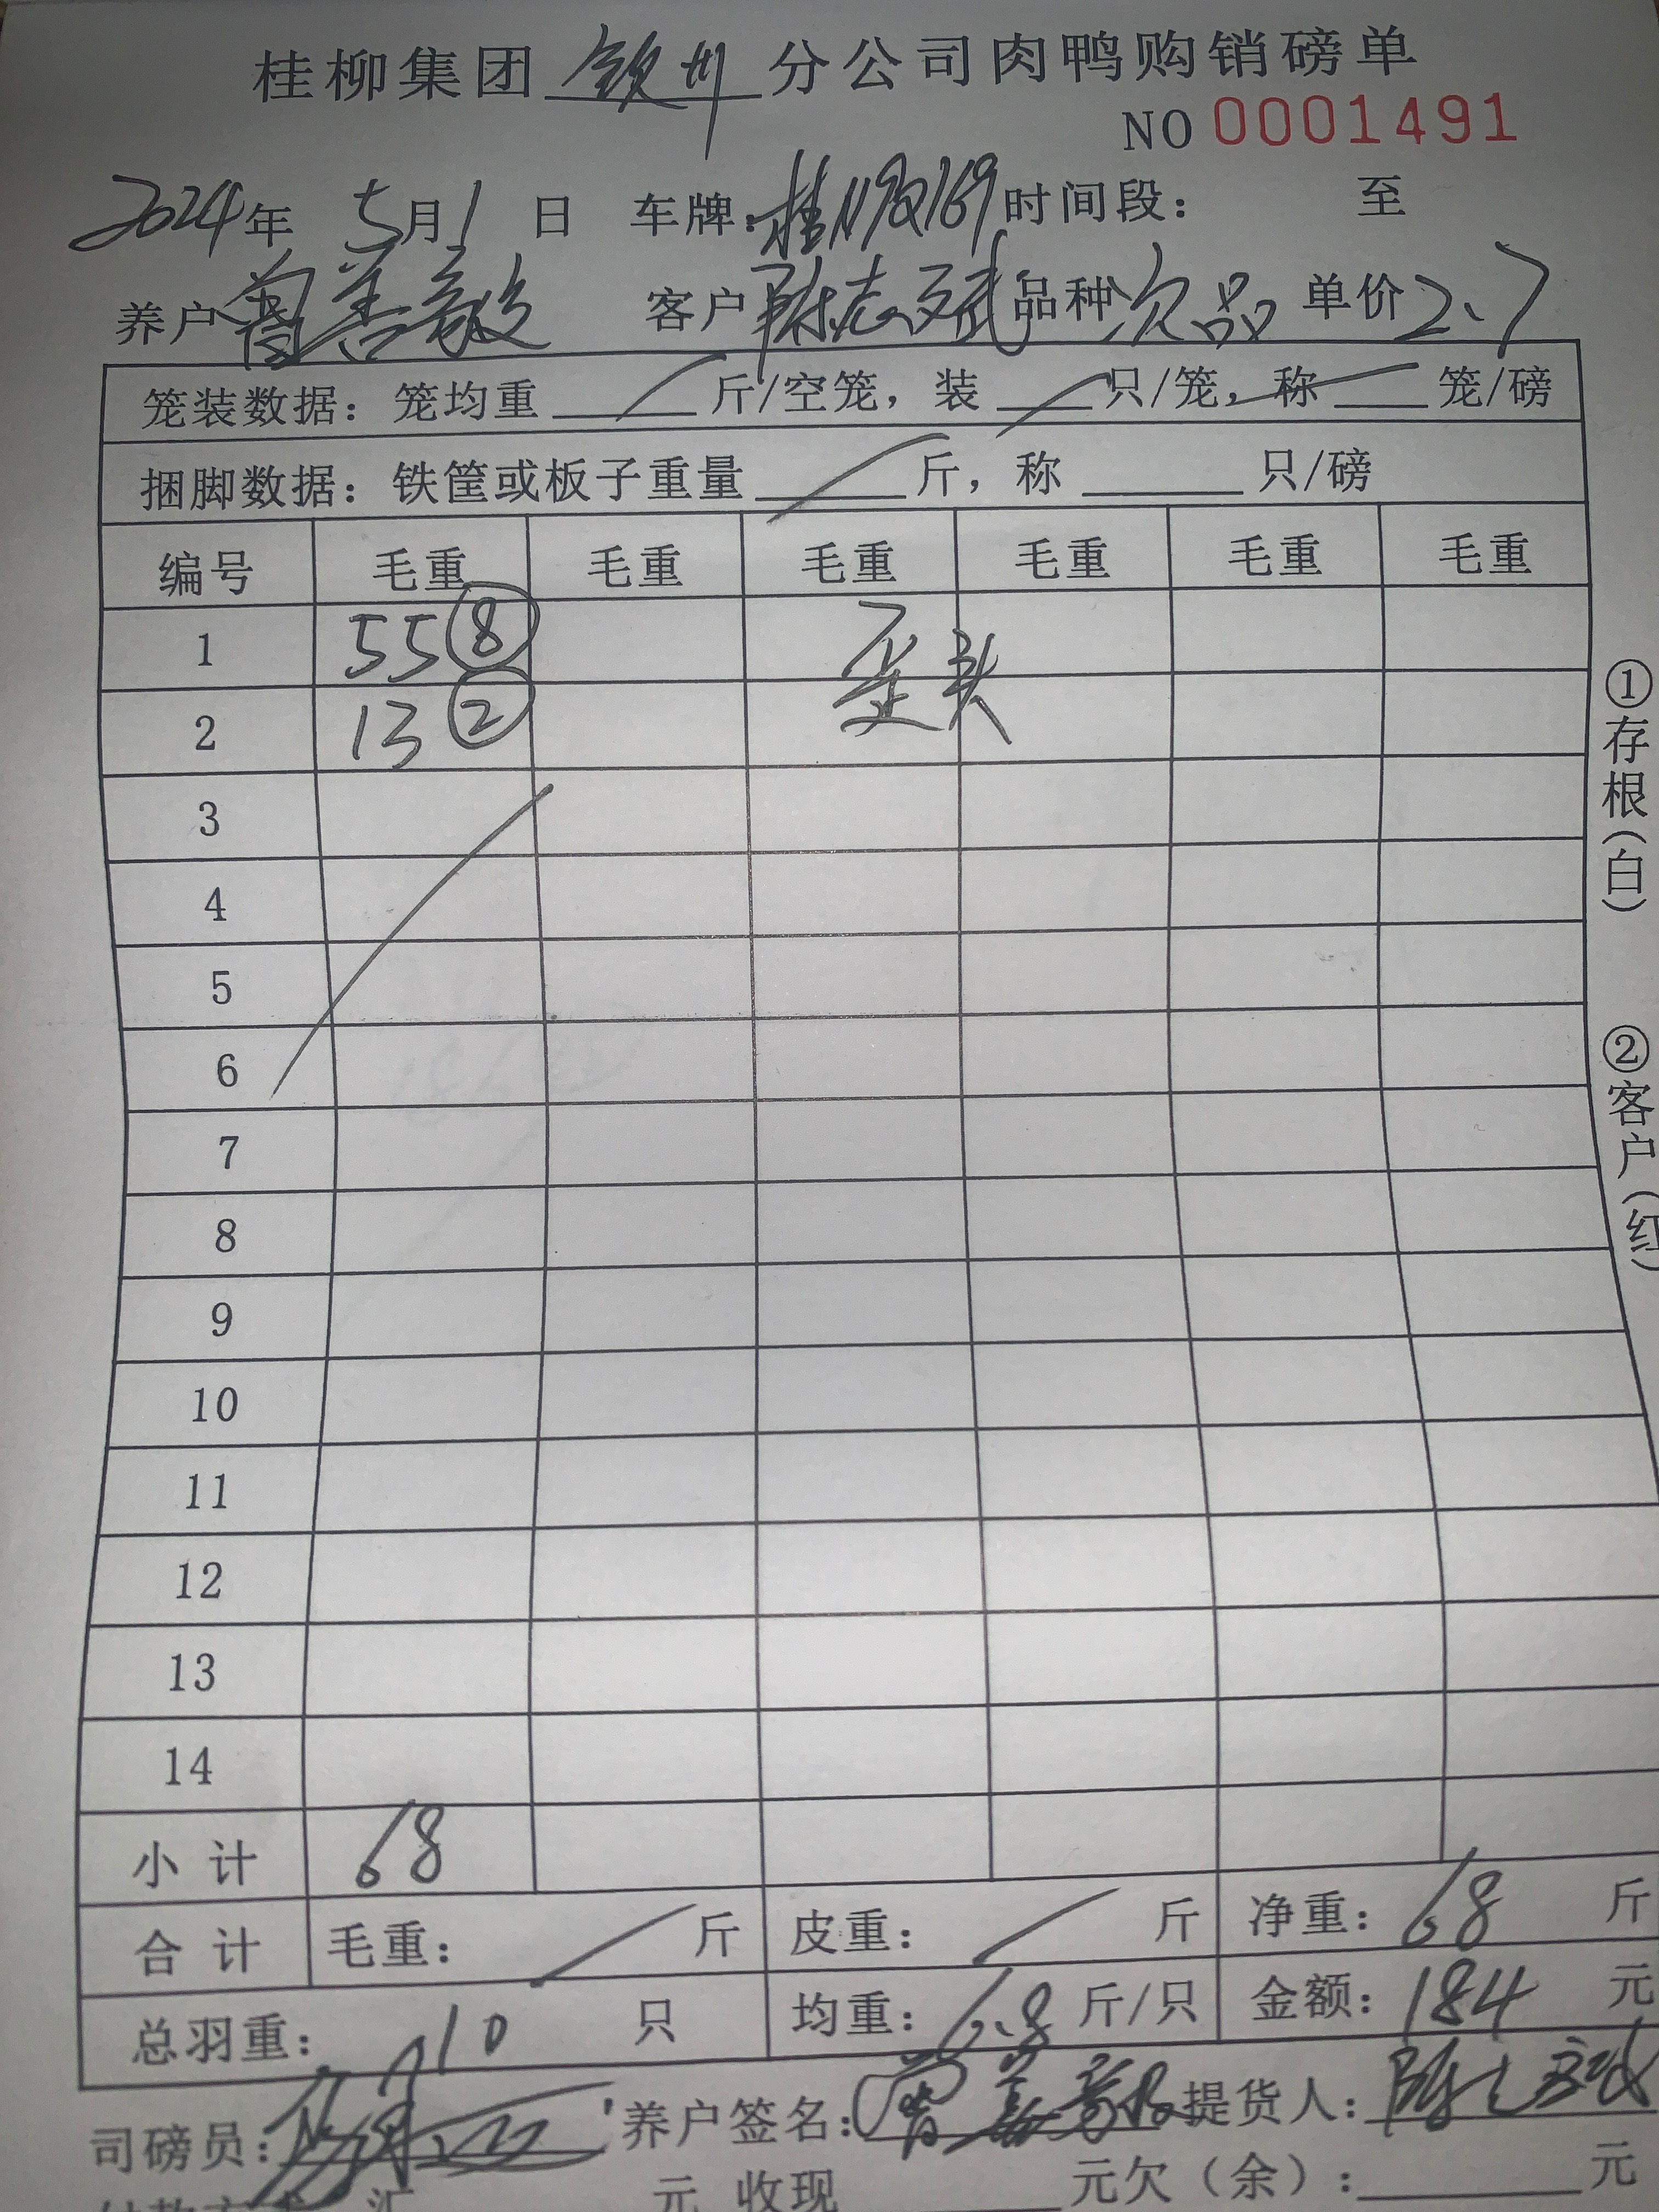 桂柳集团 钦州 分公司肉鸭购销磅单
NO 0001491
2024年 5月1日 车牌: 桂N 169 时间段: 至
养户 曾善毅 客户 陈志斌 品种 次品 单价 2.7
笼装数据: 笼均重 斤/空笼, 装 只/笼, 称 笼/磅
捆脚数据: 铁筐或板子重量 斤, 称 只/磅
编号 毛重 毛重 毛重 毛重 毛重 毛重
1 55 ⑧ 歪头
2 13 ②
3
4
5
6
7
8
9
10
11
12
13
14
小计 68
合计 毛重: 斤 皮重: 斤 净重: 68 斤
总羽重: 10 只 均重: 6.8 斤/只 金额: 184 元
司磅员: 养户签名: 曾善毅 提货人:
元 收现 元欠(余): 元
①存根(白)
②客户(红)